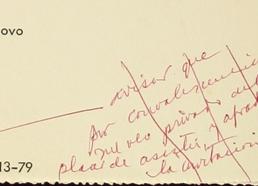 ovo
avisar que
por convalescencia
me veo privado del
placer de asistir y agrad
la invitacion
13-79